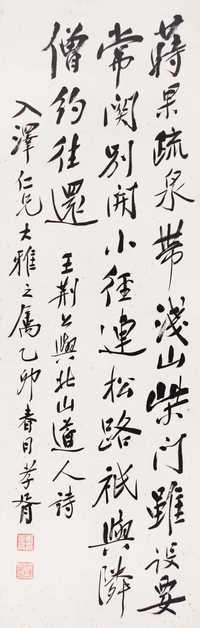 蒔果疏泉帶淺山柴门雖设要
常関别開小徑連松路祇與隣
僧約往還 王荆公與北山道人詩
入澤仁兄大雅之属乙卯春日孝胥